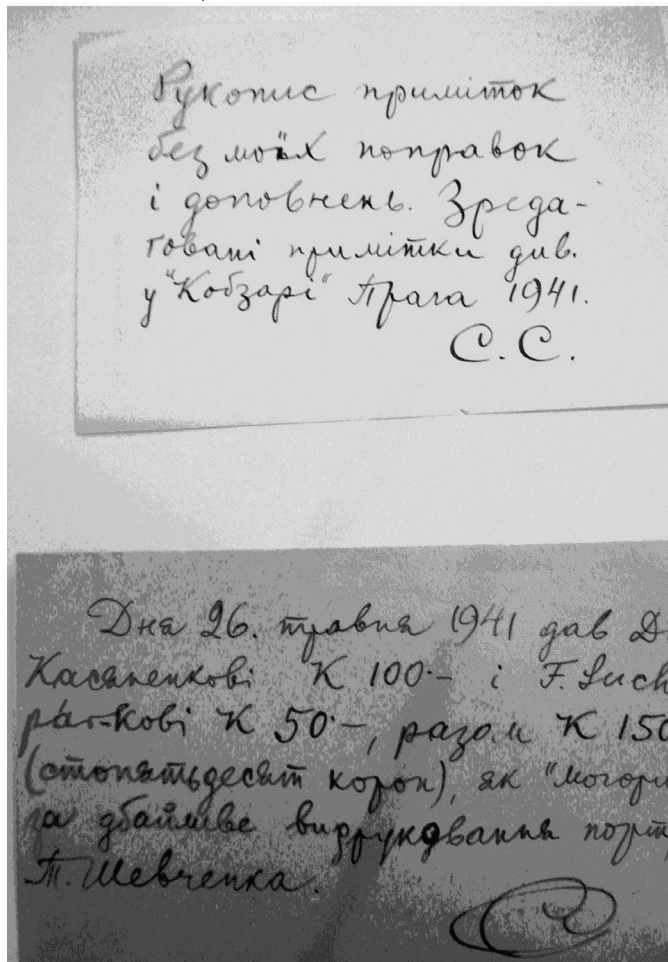 Рукопис приміток
без моїх поправок
і доповнень. Зреда-
ґовані примітки див.
у "Кобзарі" Прага 1941.
С. С.
Дня 26. травня 1941 дав
Касяненкові К 100·– і F. Such
рач-кові К 50·–, разом К 150
(стопятьдесят корон), як "могори
за дбайливе видрукування порт
Т. Шевченка.